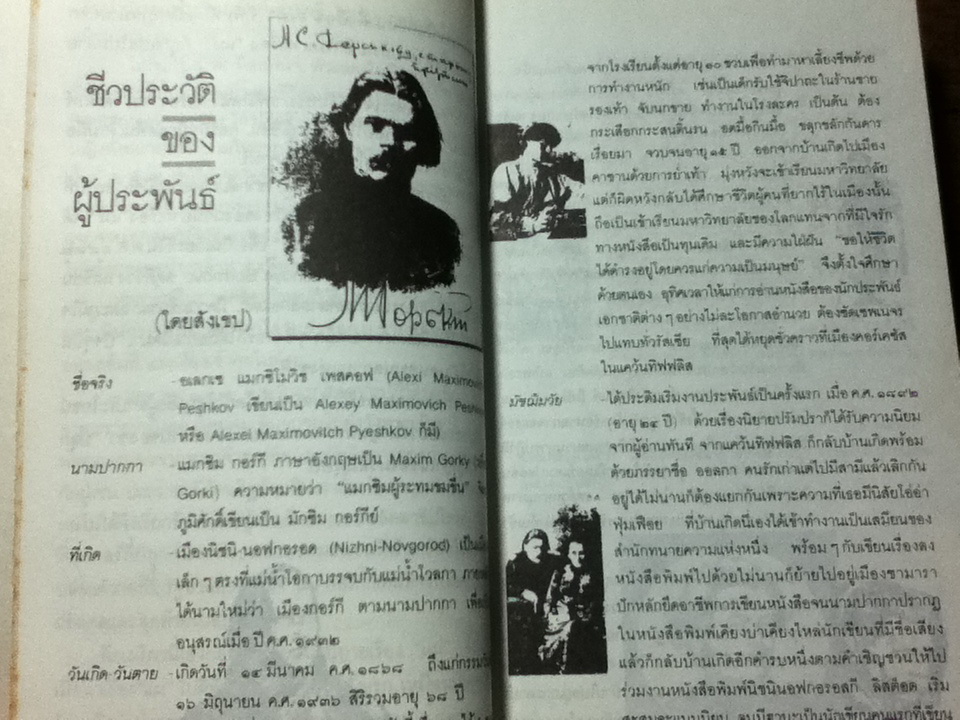 ชีวประวัติ
ของ
ผู้ประพันธ์
(โดยสังเขป)
ชื่อจริง - อเลกเซ แมกซิโมวิช เพสคอฟ (Alexi Maximovich
Peshkov เขียนเป็น Alexey Maximovich Peshkov
หรือ Alexei Maximovitch Pyeshkov ก็มี)
นามปากกา - แมกซิม กอร์กี ภาษาอังกฤษเป็น Maxim Gorky
Gorki) ความหมายว่า "แมกซิมผู้ระทมขมขื่น"
ภูมิศักดิ์เขียนเป็น มักซิม กอร์กีย์
ที่เกิด - เมืองนิชนิ-นอฟกอรอด (Nizhni-Novgorod) เป็นเมือง
เล็ก ๆ ตรงที่แม่น้ำโอกาบรรจบกับแม่น้ำโวลกา
ได้นามใหม่ว่า เมืองกอร์กี ตามนามปากกา
อนุสรณ์เมื่อ ปี ค.ศ. ๑๙๓๒
วันเกิด-วันตาย - เกิดวันที่ ๑๔ มีนาคม ค.ศ. ๑๘๖๘ ถึงแก่กรรมวันที่
๑๖ มิถุนายน ค.ศ. ๑๙๓๖ สิริรวมอายุ ๖๘ ปี
จากโรงเรียนตั้งแต่อายุ ๑๐ ขวบเพื่อทำมาหาเลี้ยงชีพด้วย
การทำงานหนัก เช่นเป็นเด็กรับใช้จิปาถะในร้านขาย
รองเท้า จับนกขาย ทำงานในโรงละคร เป็นต้น ต้อง
กระเสือกกระสนดิ้นรน อดมื้อกินมื้อ ขลุกขลักกันดาร
เรื่อยมา จวบจนอายุ ๑๕ ปี ออกจากบ้านเกิดไปเมือง
คาซานด้วยการย่ำเท้า มุ่งหวังจะเข้าเรียนมหาวิทยาลัย
แต่ก็ผิดหวังกลับได้ศึกษาชีวิตผู้คนที่ยากไร้ในเมืองนั้น
ถือเป็นเข้าเรียนมหาวิทยาลัยของโลกแทนจากที่มีใจรัก
ทางหนังสือเป็นทุนเดิม และมีความใฝ่ฝัน "ขอให้ชีวิต
ได้ดำรงอยู่โดยควรแก่ความเป็นมนุษย์" จึงตั้งใจศึกษา
ด้วยตนเอง อุทิศเวลาให้แก่การอ่านหนังสือของนักประพันธ์
เอกชาติต่าง ๆ อย่างไม่ละโอกาสอำนวย ต้องซัดเซพเนจร
ไปแทบทั่วรัสเซีย ที่สุดได้หยุดชั่วคราวที่เมืองคอร์เคซัส
ในแคว้นทิฟฟลิส
มัชฌิมวัย - ได้ประดิมเริ่มงานประพันธ์เป็นครั้งแรก เมื่อ ค.ศ. ๑๘๙๒
(อายุ ๒๔ ปี) ด้วยเรื่องนิยายปรัมปราก็ได้รับความนิยม
จากผู้อ่านทันที จากแคว้นทิฟฟลิส ก็กลับบ้านเกิดพร้อม
ด้วยภรรยาชื่อ ออลกา คนรักเก่าแต่ไปมีสามีแล้วเลิกกัน
อยู่ได้ไม่นานก็ต้องแยกกันเพราะความที่เธอมีนิสัยโอ่อ่า
ฟุ่มเฟือย ที่บ้านเกิดนี่เองได้เข้าทำงานเป็นเสมียนของ
สำนักทนายความแห่งหนึ่ง พร้อม ๆ กับเขียนเรื่องลง
หนังสือพิมพ์ไปด้วยไม่นานก็ย้ายไปอยู่เมืองซามารา
ปักหลักยึดอาชีพการเขียนหนังสือจนนามปากกาปรากฏ
ในหนังสือพิมพ์เคียงบ่าเคียงไหล่นักเขียนที่มีชื่อเสียง
แล้วก็กลับบ้านเกิดอีกคำรบหนึ่งตามคำเชิญชวนให้ไป
ร่วมงานหนังสือพิมพ์นิชนินอฟกอรอสกี ลิสต็อด เริ่ม